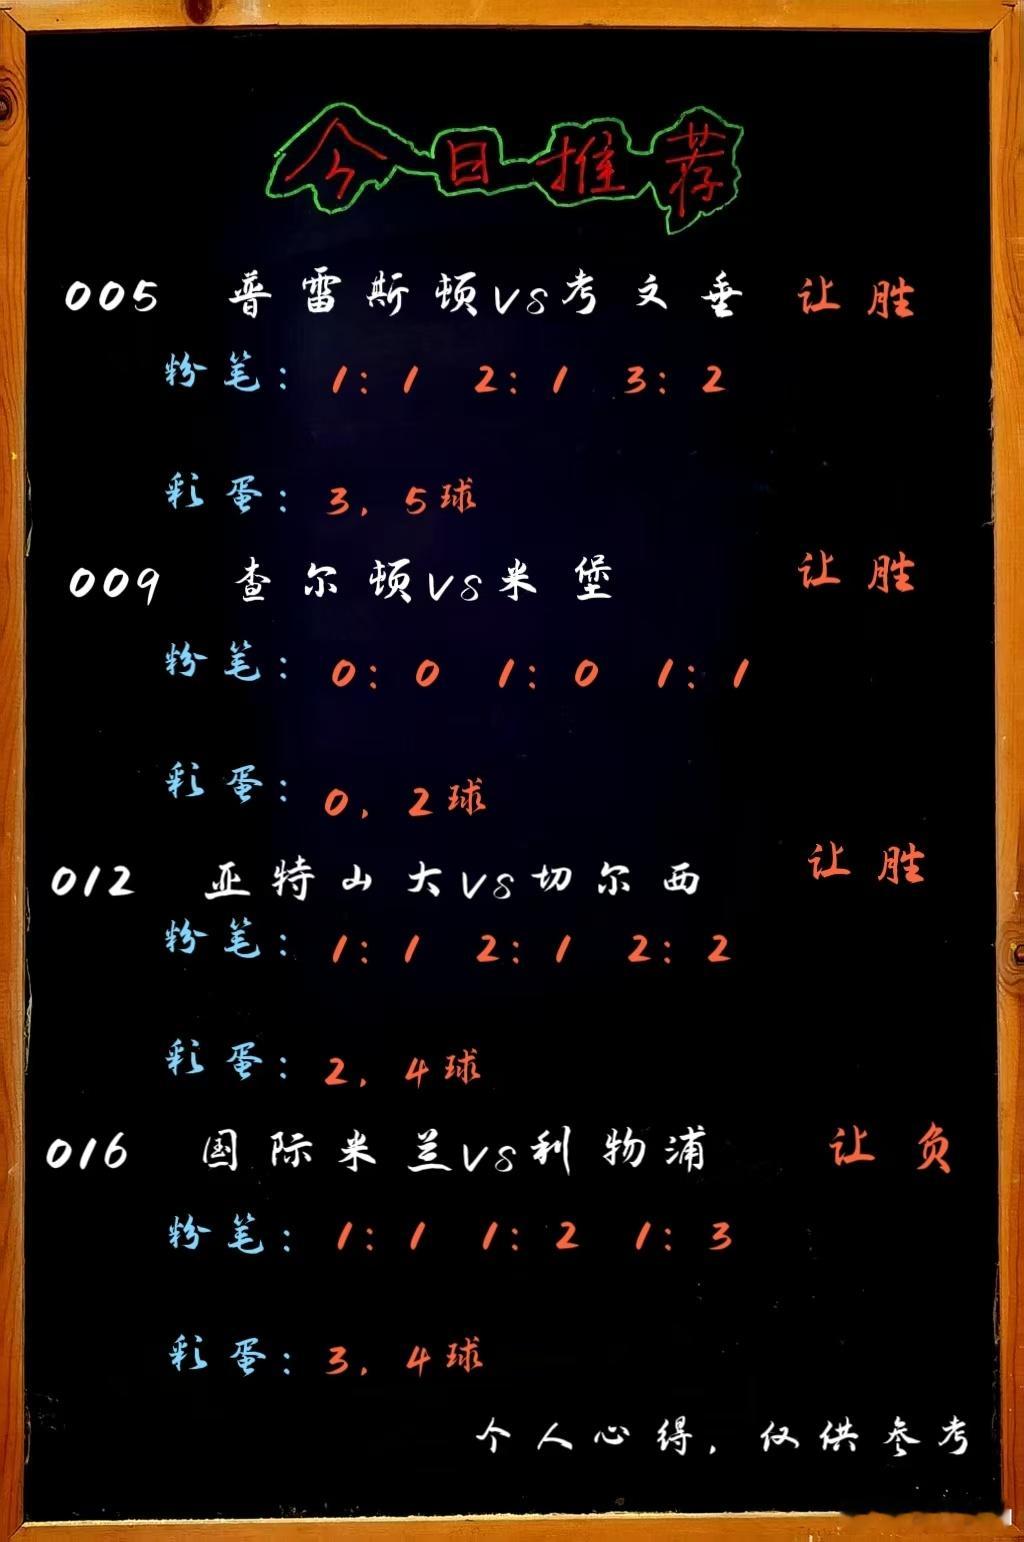 今日推荐
005 普雷斯顿VS考文垂 让胜
粉笔：1：1 2：1 3：2
彩蛋：3，5球
009 查尔顿VS米堡 让胜
粉笔：0：0 1：0 1：1
彩蛋：0，2球
012 亚特山大VS切尔西 让胜
粉笔：1：1 2：1 2：2
彩蛋：2，4球
016 国际米兰VS利物浦 让负
粉笔：1：1 1：2 1：3
彩蛋：3，4球
个人心得，仅供参考